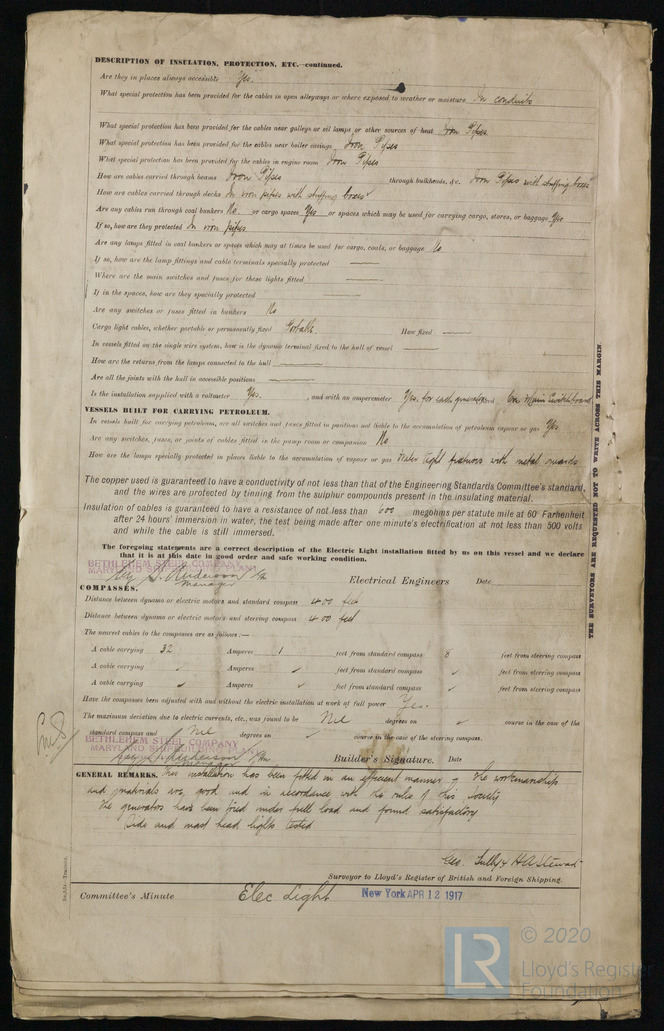 DESCRIPTION OF INSULATION, PROTECTION, ETC.—continued.
Are they in places always accessible Yes.
What special protection has been provided for the cables in open alleyways or where exposed to weather or moisture In conduits
What special protection has been provided for the cables near galleys or oil lamps or other sources of heat Iron Pipes
What special protection has been provided for the cables near boiler casings Iron Pipes
What special protection has been provided for the cables in engine room Iron Pipes
How are cables carried through beams Iron Pipes through bulkheads, &c. Iron Pipes with stuffing boxes
How are cables carried through decks In iron pipes with stuffing boxes
Are any cables run through coal bunkers No or cargo spaces Yes or spaces which may be used for carrying cargo, stores, or baggage Yes
If so, how are they protected In iron pipes
Are any lamps fitted in coal bunkers or spaces which may at times be used for cargo, coals, or baggage No
If so, how are the lamp fittings and cable terminals specially protected
Where are the main switches and fuses for these lights fitted
If in the spaces, how are they specially protected
Are any switches or fuses fitted in bunkers No
Cargo light cables, whether portable or permanently fixed Portable How fixed
In vessels fitted on the single wire system, how is the dynamo terminal fixed to the hull of vessel
How are the returns from the lamps connected to the hull
Are all the joints with the hull in accessible positions
Is the installation supplied with a voltmeter Yes. , and with an amperemeter Yes, for each generator on Main Switchboard
VESSELS BUILT FOR CARRYING PETROLEUM.
In vessels built for carrying petroleum, are all switches and fuses fitted in positions not liable to the accumulation of petroleum vapour or gas Yes
Are any switches, fuses, or joints of cables fitted in the pump room or companion No
How are the lamps specially protected in places liable to the accumulation of vapour or gas Water tight fixtures with metal guards
The copper used is guaranteed to have a conductivity of not less than that of the Engineering Standards Committee's standard,
and the wires are protected by tinning from the sulphur compounds present in the insulating material.
Insulation of cables is guaranteed to have a resistance of not less than 600 megohms per statute mile at 60° Farhenheit
after 24 hours' immersion in water, the test being made after one minute's electrification at not less than 500 volts
and while the cable is still immersed.
The foregoing statements are a correct description of the Electric Light installation fitted by us on this vessel and we declare
that it is at this date in good order and safe working condition.
BETHLEHEM STEEL COMPANY
MARYLAND SHIPBUILDING PLANT
Manager
Electrical Engineers Date
COMPASSES.
Distance between dynamo or electric motors and standard compass 400 feet
Distance between dynamo or electric motors and steering compass 400 feet
The nearest cables to the compasses are as follows:—
A cable carrying 32 Amperes 1 feet from standard compass 8 feet from steering compass
A cable carrying ✓ Amperes ✓ feet from standard compass ✓ feet from steering compass
A cable carrying ✓ Amperes ✓ feet from standard compass ✓ feet from steering compass
Have the compasses been adjusted with and without the electric installation at work at full power Yes.
The maximum deviation due to electric currents, etc., was found to be Nil degrees on ✓ course in the case of the
standard compass and Nil degrees on ✓ course in the case of the steering compass.
BETHLEHEM STEEL COMPANY
MARYLAND
Manager
Builder's Signature. Date
GENERAL REMARKS. This installation has been fitted in an efficient manner, the workmanship
and materials are good and in accordance with the rules of this Society
The generators have been tried under full load and found satisfactory
Side and mast head lights tested
Geo. Tully & H A Stewart
Surveyor to Lloyd's Register of British and Foreign Shipping.
Committee's Minute Elec Light New York APR 12 1917
THE SURVEYORS ARE REQUESTED NOT TO WRITE ACROSS THIS MARGIN
LR
© 2020
Lloyd's Register
Foundation